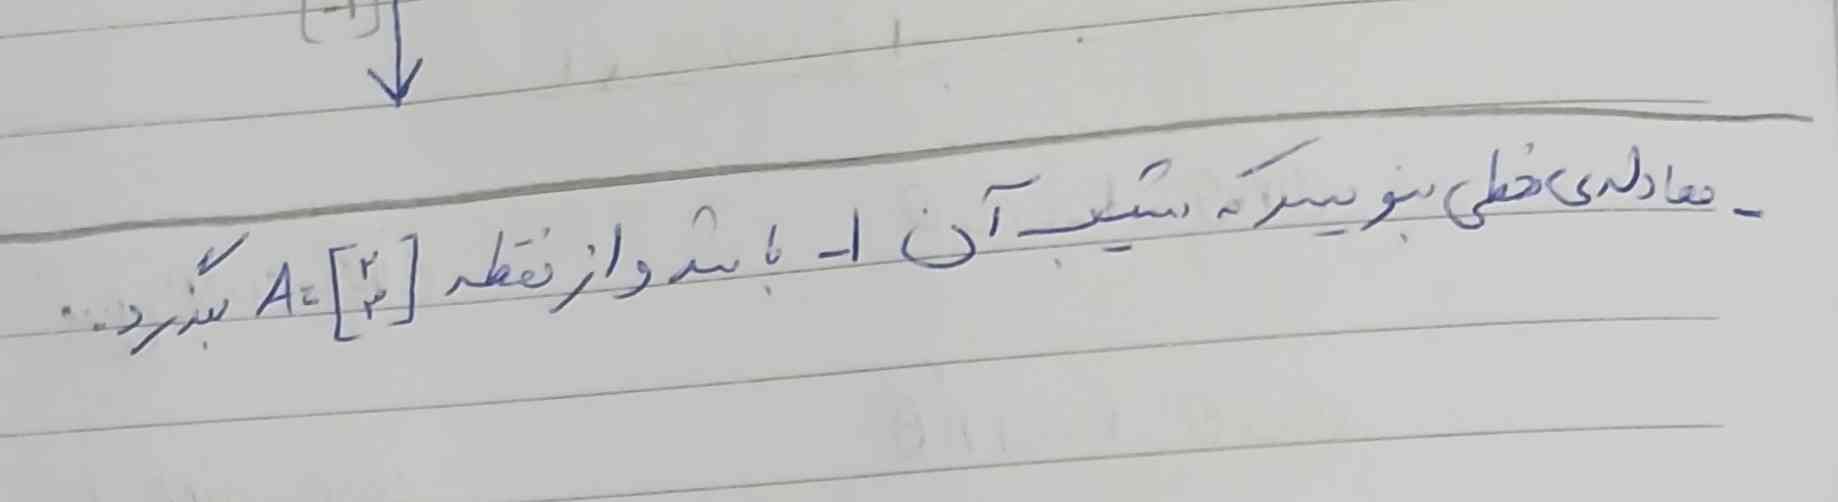 [-۱]
- معادله‌ی خطی بنویسید که شیب آن ۱- باشد و از نقطه A = [۲ ۳] بگذرد.